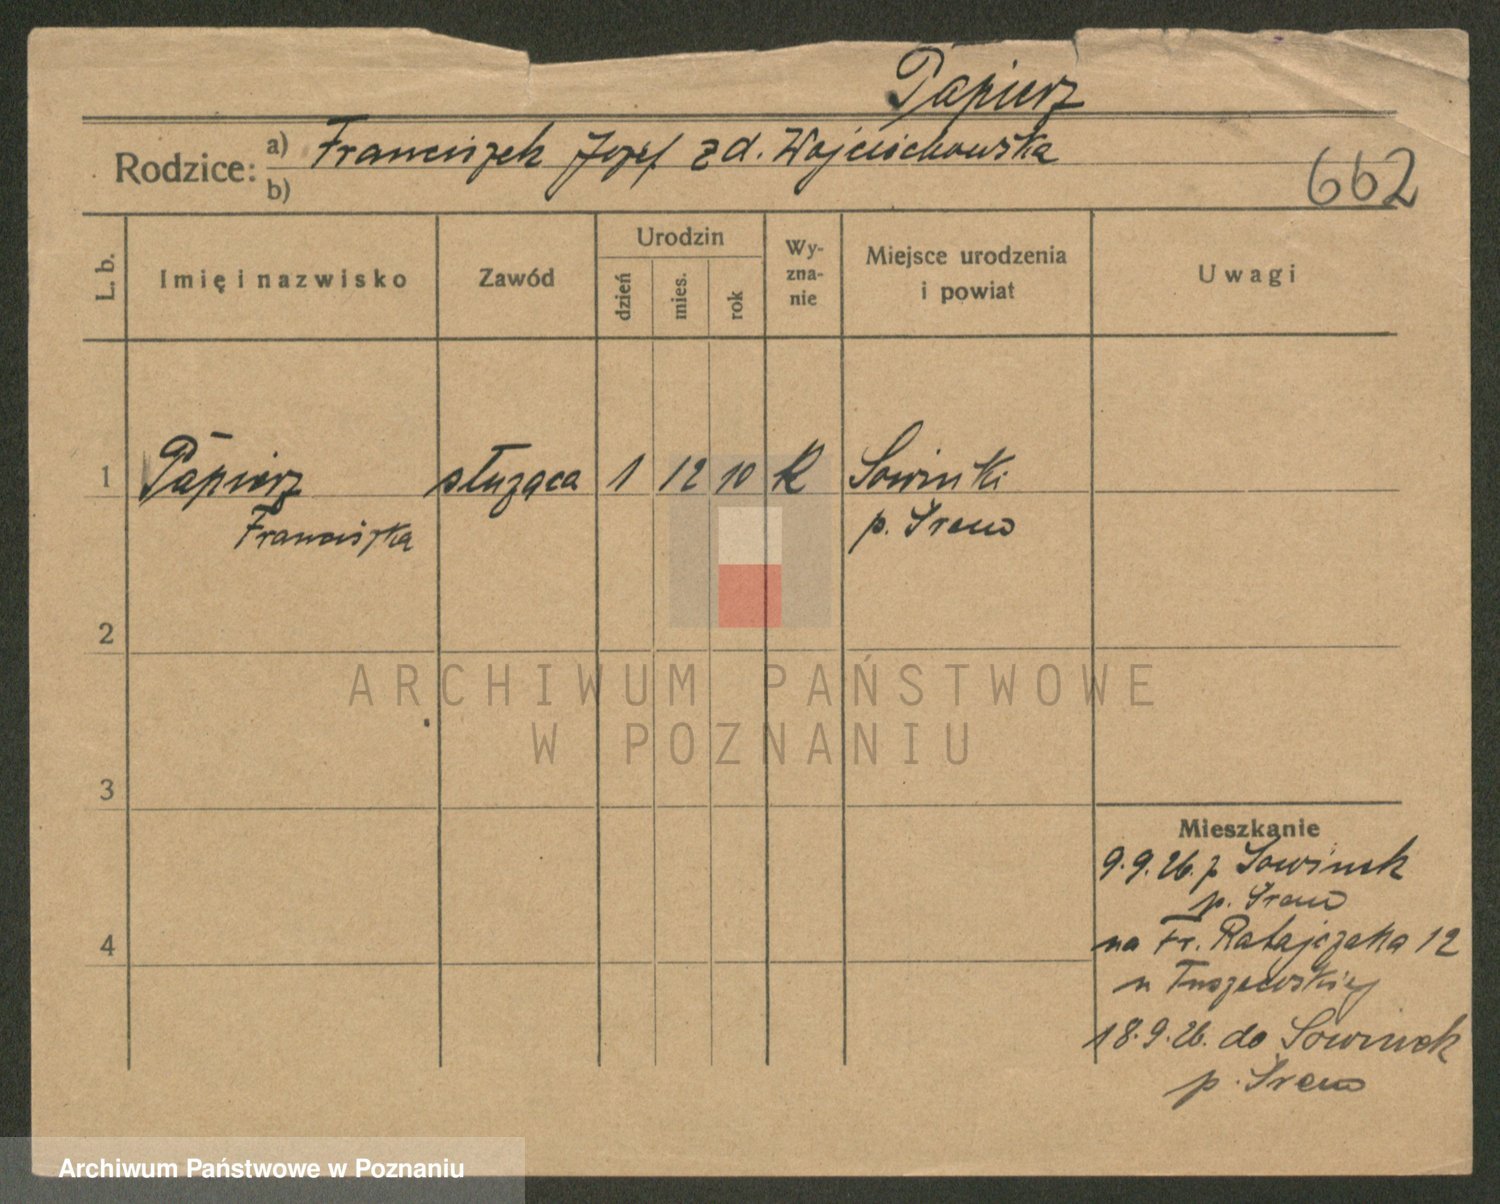 Papierz
Rodzice: a) Franciszek Józef zd. Wojciechowska
b)
662
L. b.
Imię i nazwisko
Zawód
Urodzin
dzień
mies.
rok
Wy-
zna-
nie
Miejsce urodzenia
i powiat
Uwagi
1 Papierz służąca 1 12 10 K Sowinki
Franciszka p. Śrem
2
3
4
Mieszkanie
9.9.26. z Sowinek
p. Śrem
na Fr. Ratajczaka 12
u Tuszewskiej
18.9.26. do Sowinek
p. Śrem
ARCHIWUM PAŃSTWOWE
W POZNANIU
Archiwum Państwowe w Poznaniu